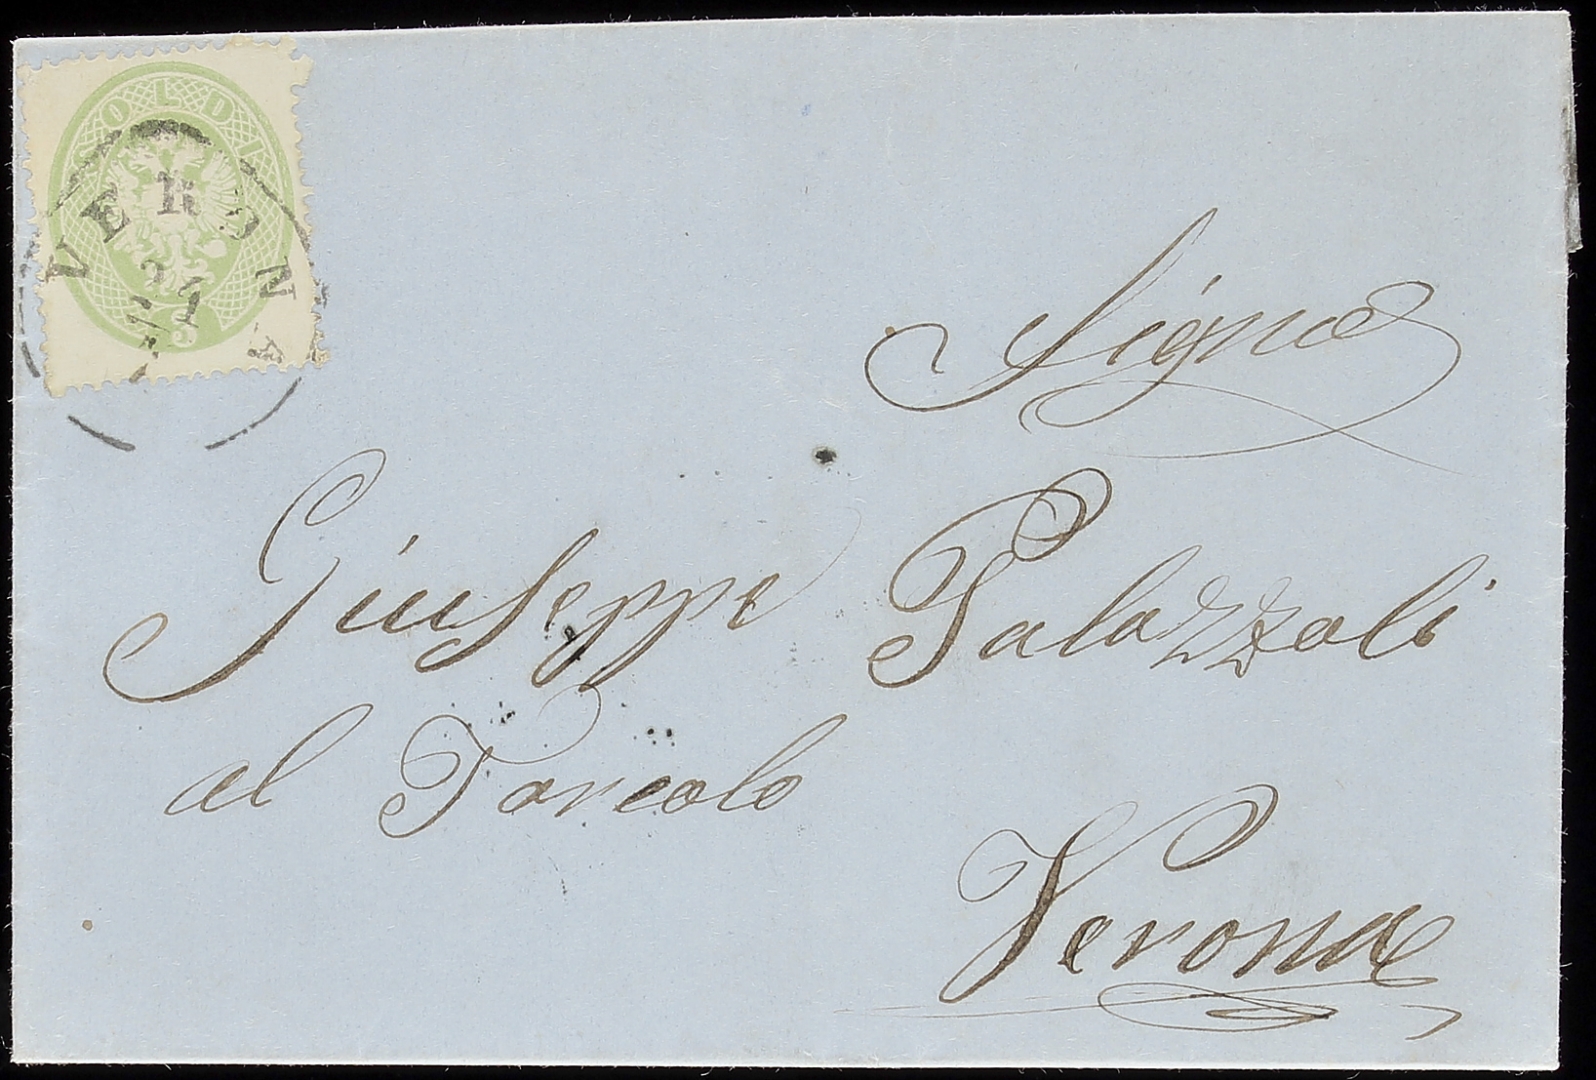 SOLDI
3
VERONA
Signor
Giuseppe Palazzoli
al Torcolo
Verona